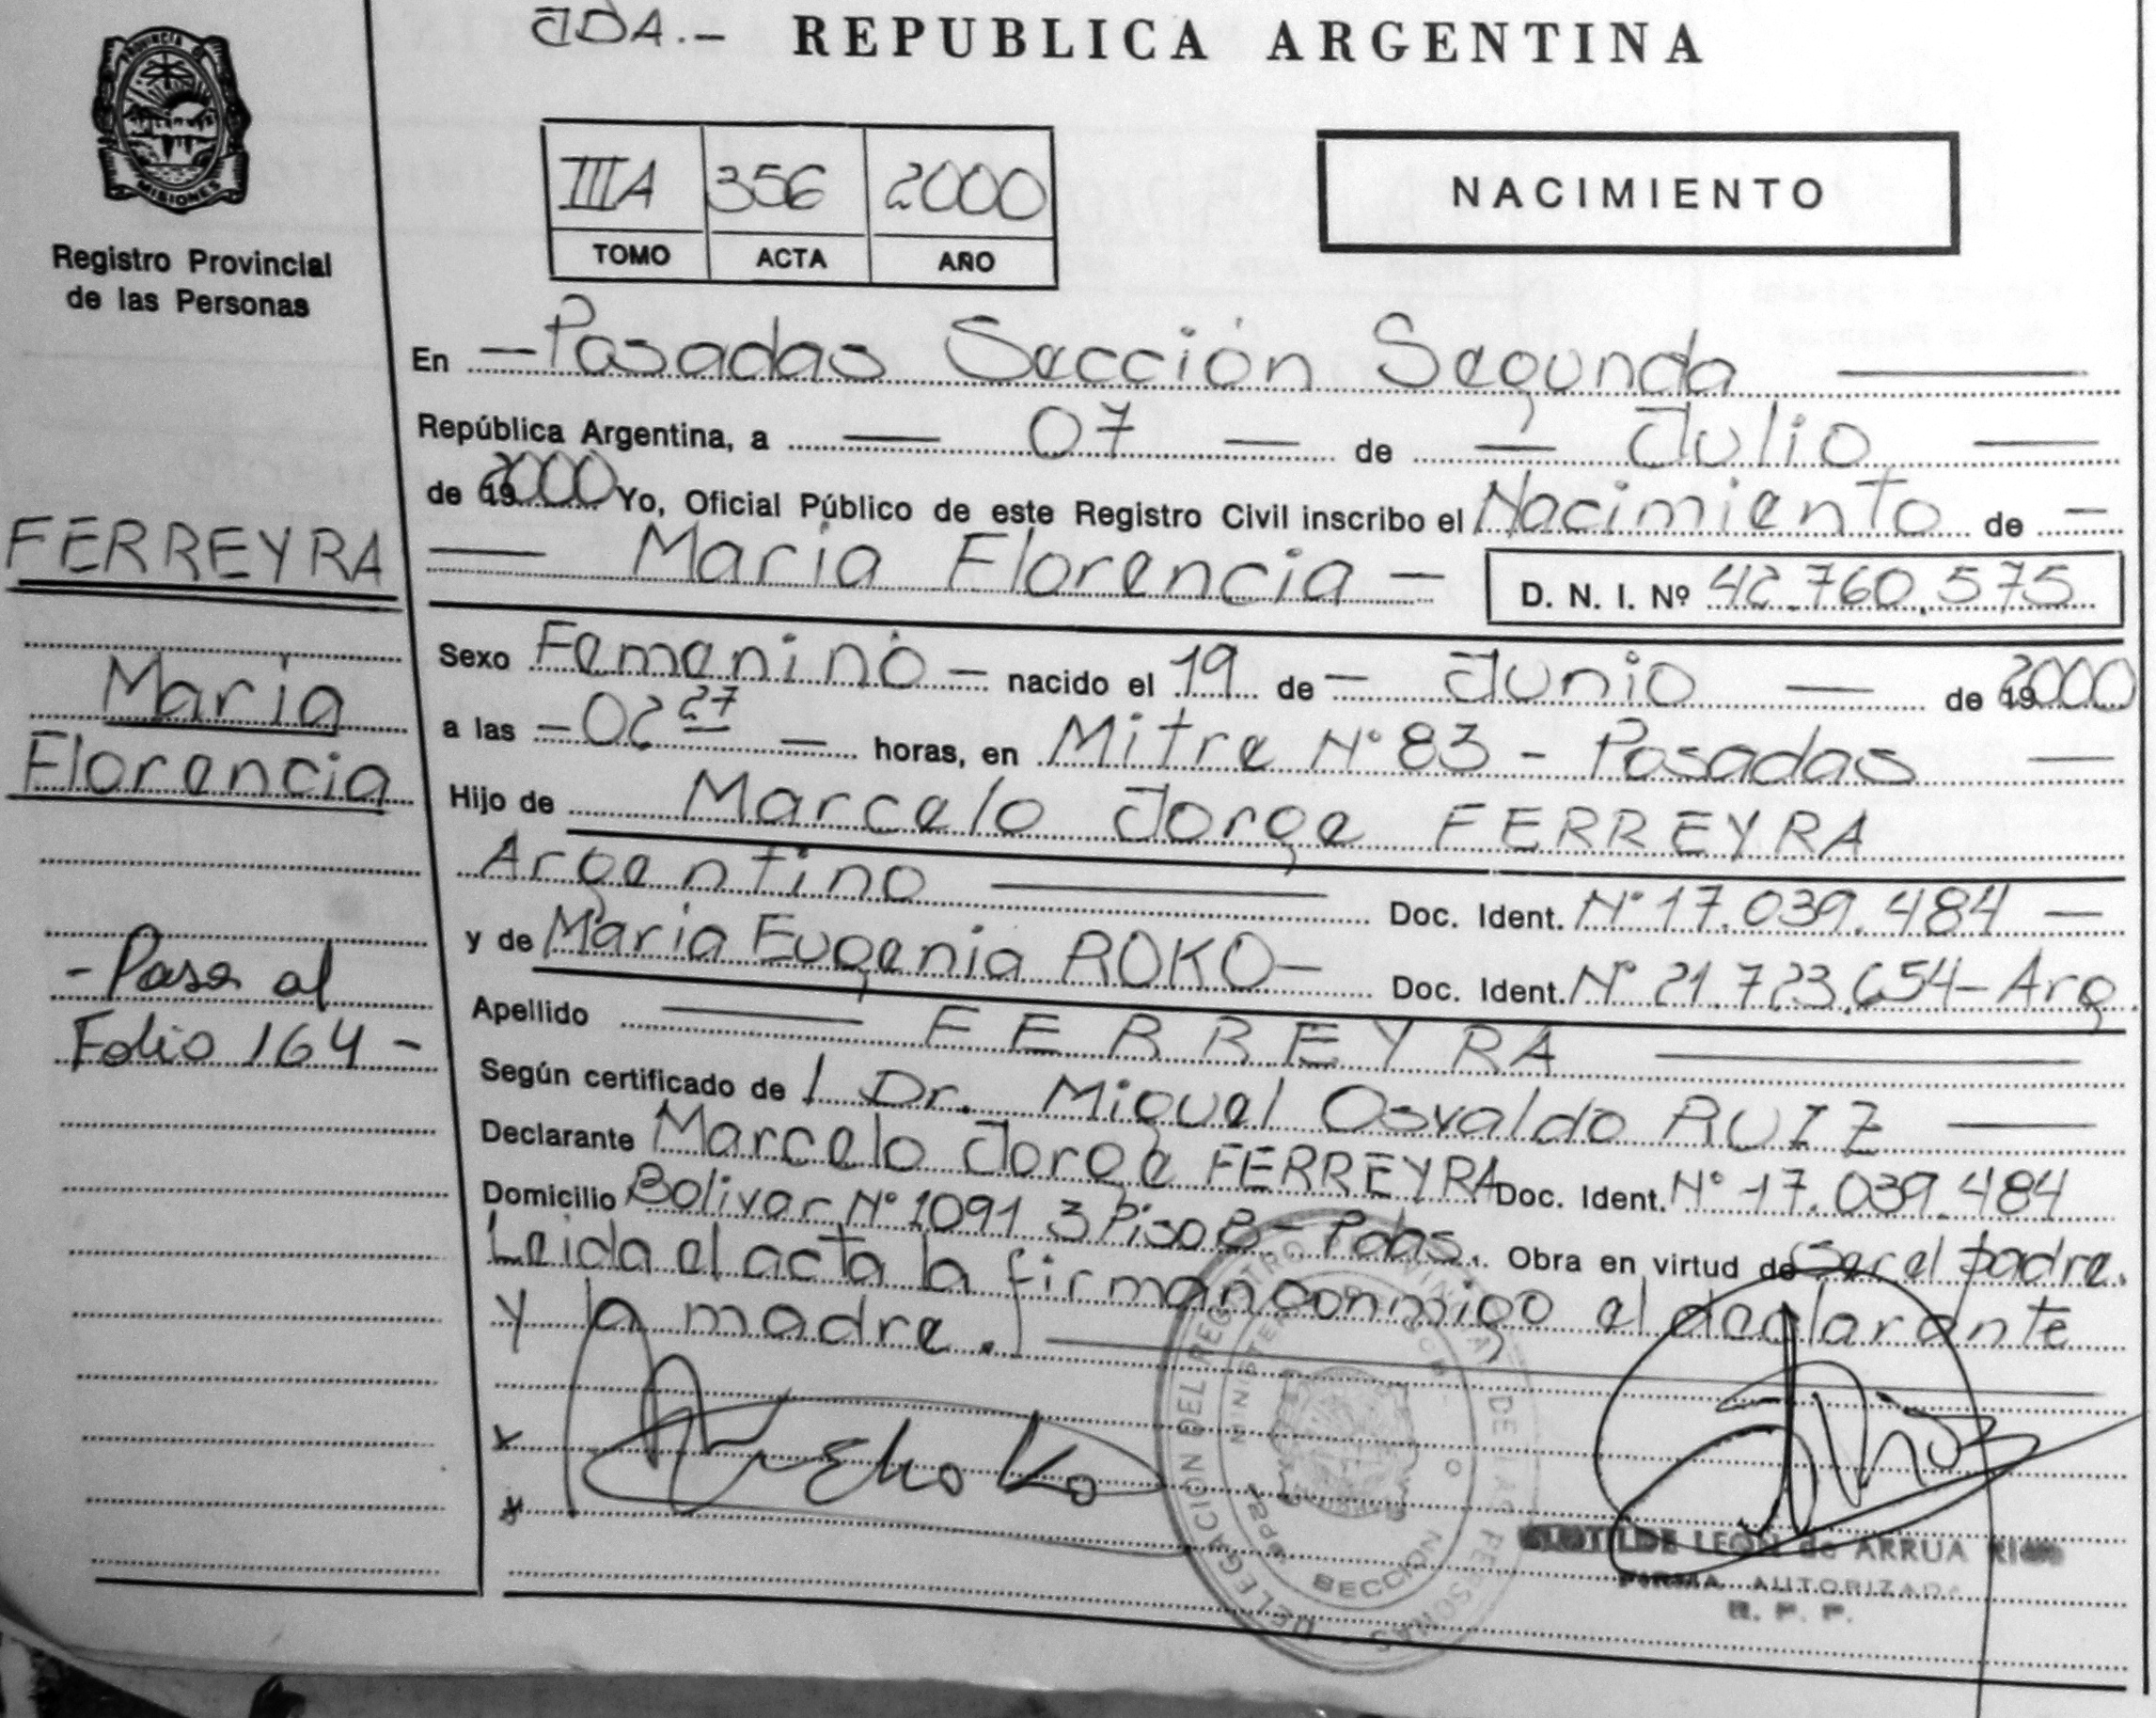 JDA.- REPUBLICA ARGENTINA
PROVINCIA DE
MISIONES
Registro Provincial
de las Personas
IIIA 356 2000
TOMO ACTA AÑO
NACIMIENTO
En - Posadas Sección Segunda
República Argentina, a 07 de Julio
de 2000 Yo, Oficial Público de este Registro Civil inscribo el Nacimiento de
Maria Florencia - D. N. I. Nº 42.760.575
Sexo Femenino - nacido el 19 de Junio de 2000
a las - 02 27 - horas, en Mitre N° 83 - Posadas
Hijo de Marcelo Jorge FERREYRA
Argentino Doc. Ident. N° 17.039.484
y de Maria Eugenia ROKO - Doc. Ident. N° 21.723.654 - Arg.
Apellido FERREYRA
Según certificado de / Dr. Miguel Osvaldo RUIZ
Declarante Marcelo Jorge FERREYRA Doc. Ident. N° 17.039.484
Domicilio Bolivar N° 1091 3 Piso B - Pdas. Obra en virtud de ser el padre.
Leida el acta la firman conmigo el declarante
y la madre.
FERREYRA
Maria
Florencia
- Pasa al
Folio 164 -
DELEGACION DEL REGISTRO PROVINCIAL DE LAS PERSONAS
SECCION
CLOTILDE LEON de ARRUA
FIRMA AUTORIZADA
R. P. P.